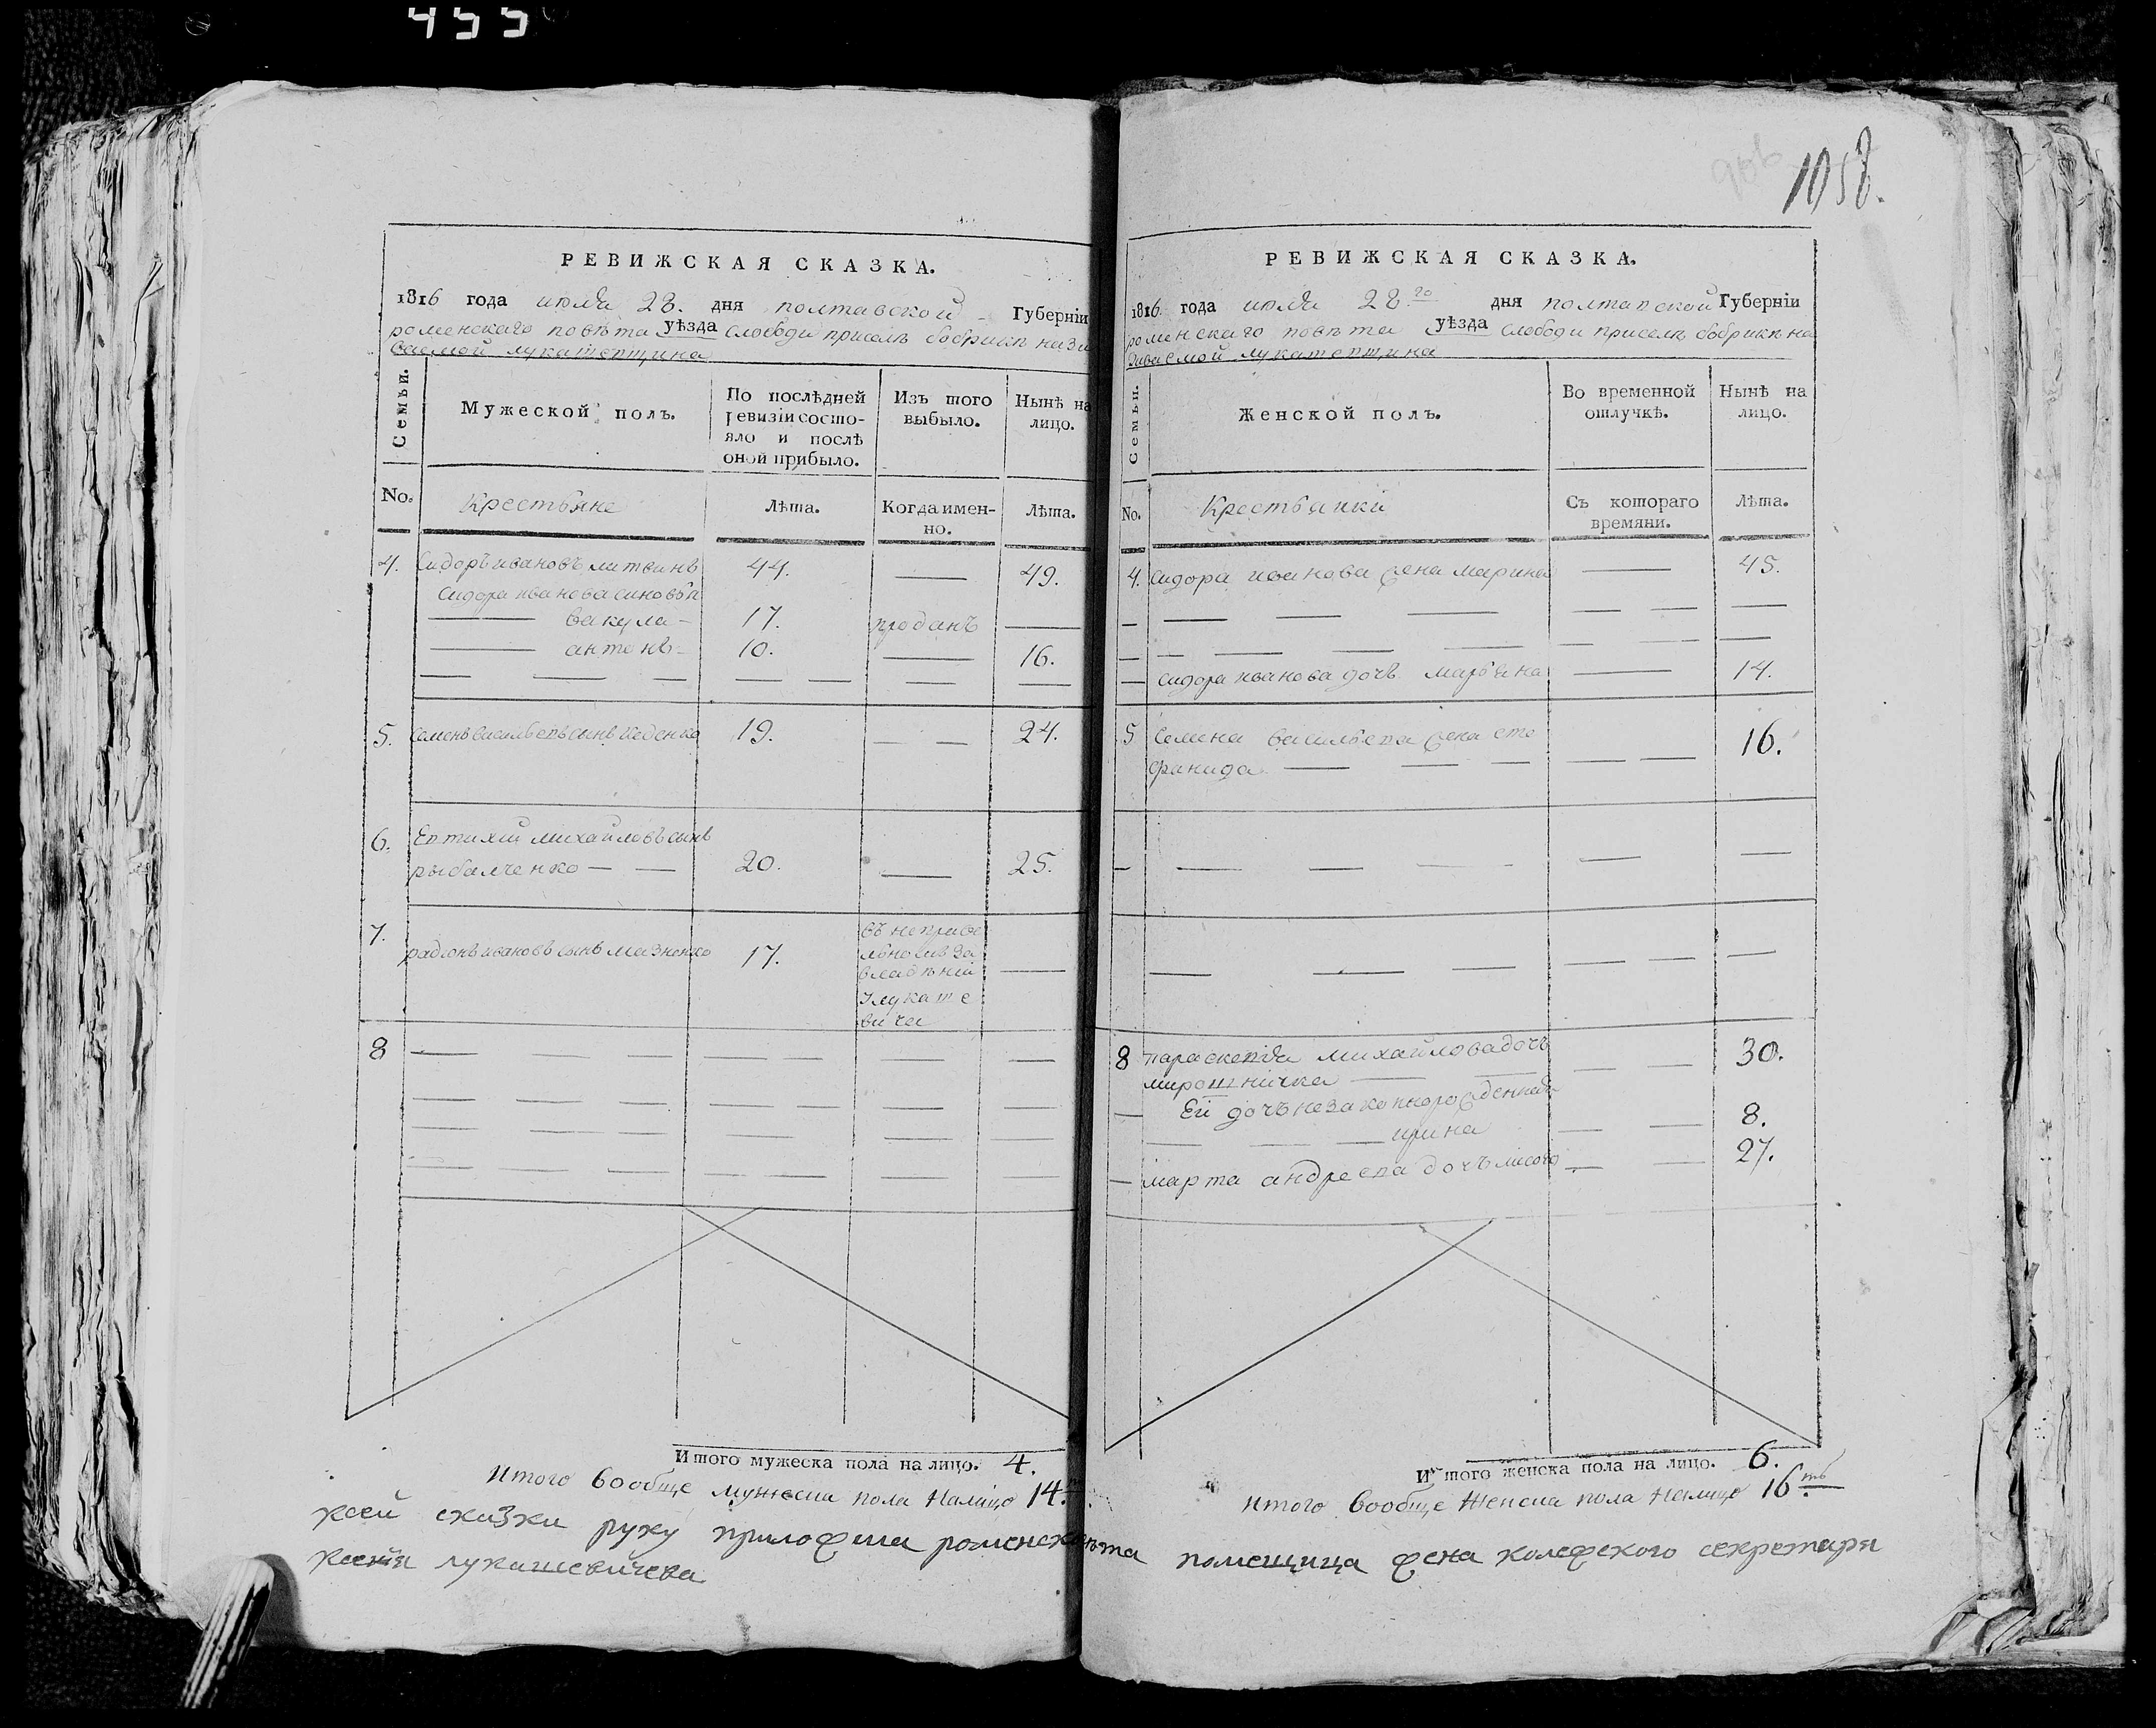 455
1058.
РЕВИЖСКАЯ СКАЗКА.
1816 года июля 28. дня полтавской Губерніи
роменскаго повѣта уѣзда слободи приселк бобрикъ нази
ваемой лукашевщина
Семьи.
Мужеской полъ.
По послѣдней ревизіи состояло и послѣ оной прибыло.
Изъ того выбыло.
Нынѣ на лицо.
No.
Крестьяне
Лѣта.
Когда именно.
Лѣта.
4. Сидоръ ивановъ литвинъ 44. — 49.
Сидора иванова синовья
— вакула — 17. проданъ —
— антонъ — 10. — 16.
5. Семенъ васильевъ сынъ 19. — — 24.
6. Евтихій михайловъ сынъ
рыбалченко — — 20. — 25.
7. радіонъ ивановъ сынъ мазненко 17.
владѣніи
лукаше
вича
8
Итого мужеска пола на лицо. 4.
итого вообще мужеска пола налицо 14.
РЕВИЖСКАЯ СКАЗКА.
1816. года июля 28го дня полтавской Губерніи
роменскаго повѣта уѣзда слободи приселк бобрикъ на
зиваемой лукашевщина
Семьи.
Женской полъ.
Во временной отлучкѣ.
Нынѣ на лицо.
No.
Крестьянки
Съ котораго времяни.
Лѣта.
4. Сидора иванова жена марина — 45.
— сидора иванова дочь марьяна — 14.
5 Семена васильева жена сте
фанида — — — 16.
8 параскевія михайлова дочь 30.
мирошничка
— Ей дочь незаконнорожденная
ирина 8.
— марта андреева дочь 27.
Итого женска пола на лицо. 6.
итого вообще женска пола налицо 16ть
ксей скизки руку приложила роменска повѣта помещица жена колежского секретаря
ксенія лукашевичева